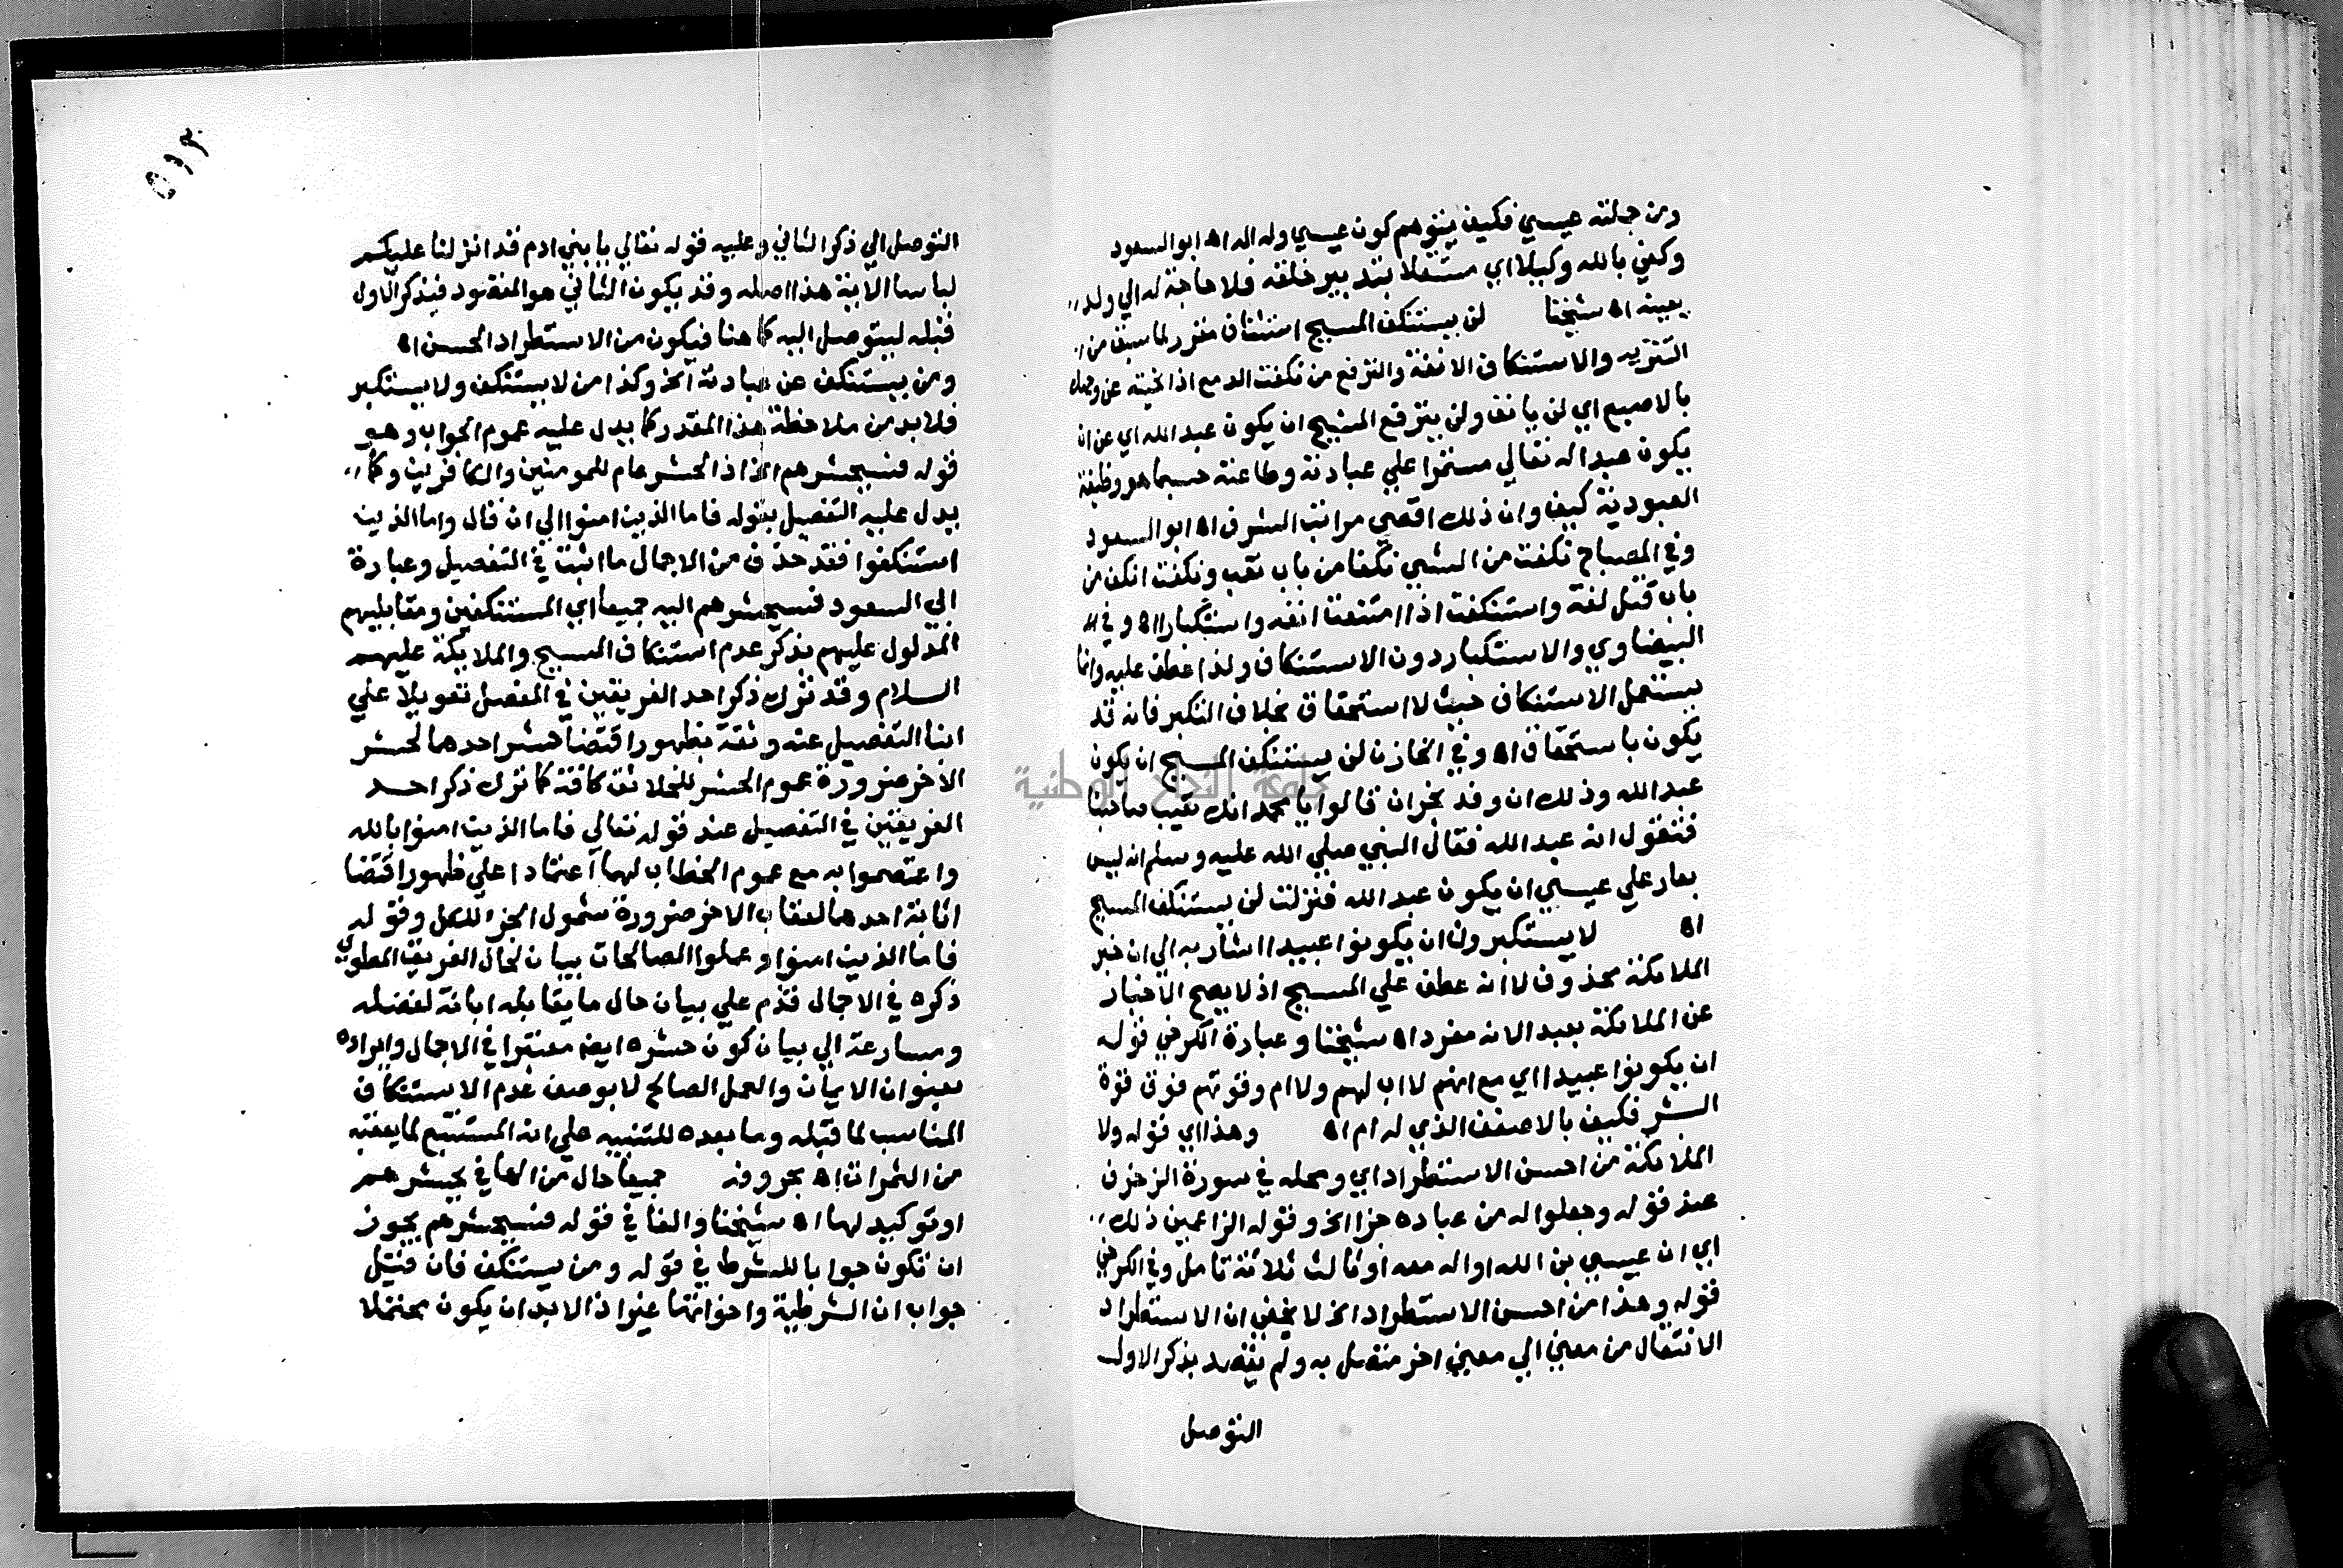 ومن جملته عيسي فكيف يتوهم كون عيسي ولد اله اه ابو السعود
وكفي بالله وكيلا اي مستقلا بتدبير خلقه فلا حاجة له الي ولد
يعينه اه شيخنا لن يستنكف المسيح استئناف مقرر لما سبق من
التنزيه والاستنكاف الانفة والترفع من نكفت الدمع اذا نحيته عن وجهك
بالاصبع اي لن يانف ولن يترفع المسيح ان يكون عبد الله اي عن ان
يكون عبدا له تعالي مستمرا علي عبادته وطاعته حسبما هو وظيفة
العبودية كيف وان ذلك اقصي مراتب الشرف اه ابو السعود
وفي المصباح نكفت من الشي نكفا من باب تعب ونكفت انكف من
باب قتل لغة واستنكفت اذا امتنعت انفة واستكبارا اه وفي
البيضاوي والاستكبار دون الاستنكاف ولذا عطف عليه وانما
يستعمل الاستنكاف حيث لا استحقاق بخلاف التكبر فانه قد
يكون باستحقاق اه وفي الخازن لن يستنكف المسيح ان يكون
عبد الله وذلك ان وفد نجران قالوا يا محمد انك تعيب صاحبنا
فتقول انه عبد الله فقال النبي صلي الله عليه وسلم انه ليس
بعار علي عيسي ان يكون عبد الله فنزلت لن يستنكف المسيح
اه لا يستكبرون ان يكونوا عبيدا اشار به الي ان خبر
الملائكة محذوف لا انه عطف علي المسيح اذ لا يصح الاخبار
عن الملائكة بعبد لانه مفرد اه شيخنا وعبارة الكرخي قوله
ان يكونوا عبيدا اي مع انهم لا اب لهم ولا ام وقوتهم فوق قوة
البشر فكيف بالاضعف الذي له ام اه وهذا اي قوله ولا
الملائكة من احسن الاستطراد اي ومحله في سورة الزخرف
عند قوله وجعلوا له من عباده جزا الخ وقوله الزاعمين ذلك
اي ان عيسي بن الله او اله معه او ثالث ثلاثة تامل وفي الكرخي
قوله وهذا من احسن الاستطراد الخ لا يخفي ان الاستطراد
الانتقال من معني الي معني اخر متصل به ولم يقصد بذكر الاول
التوصل
التوصل الي ذكر الثاني وعليه قوله تعالي يا بني ادم قد انزلنا عليكم
لباسا الاية هذا اصله وقد يكون الثاني هو المقصود فيذكر الاول
قبله ليتوصل اليه كما هنا فيكون من الاستطراد الحسن اه
ومن يستنكف عن عبادته الخ وكذا من لا يستنكف ولا يستكبر
فلا بد من ملاحظة هذا المقدر كما يدل عليه عموم الجواب وهو
قوله فسيحشرهم الخ اذ الحشر عام للمومنين والكافرين وكما
يدل عليه التفصيل بقوله فاما الذين امنوا الي ان قال واما الذين
استنكفوا فقد حذف من الاجمال ما اثبت في التفصيل وعبارة
ابي السعود فسيحشرهم اليه جميعا اي المستنكفين ومقابليهم
المدلول عليهم بذكر عدم استنكاف المسيح والملائكة عليهم
السلام وقد ترك ذكر احد الفريقين في المفصل تعويلا علي
انبا التفصيل عنه وثقة بظهور اقتضا حشر احدهما لحشر
الاخر ضرورة عموم الحشر للخلائق كافة كما ترك ذكر احد
الفريقين في التفصيل عند قوله تعالي فاما الذين امنوا بالله
واعتصموا به مع عموم الخطاب لهما اعتمادا علي ظهور اقتضا
اثابة احدهما لعقاب الاخر ضرورة شمول الجزا للكل وقوله
فاما الذين امنوا وعملوا الصالحات بيان لحال الفريق المطوي
ذكره في الاجمال قدم علي بيان حال ما يقابله ابانة لفضله
ومسارعة الي بيان كون حشره ايضه معتبرا في الاجمال وايراده
بعنوان الايمان والعمل الصالح لا بوصف عدم الاستنكاف
المناسب لما قبله وما بعده للتنبيه علي انه المستتبع لما يعقبه
من الثمرات اه بحروفه جميعا حال من الها في يحشرهم
او توكيد لها اه شيخنا والفا في قوله فسيحشرهم يجوز
ان تكون جوابا للشرط في قوله ومن يستنكف فان قيل
جواب ان الشرطية واخواتها غير اذا لا بد ان يكون محتملا